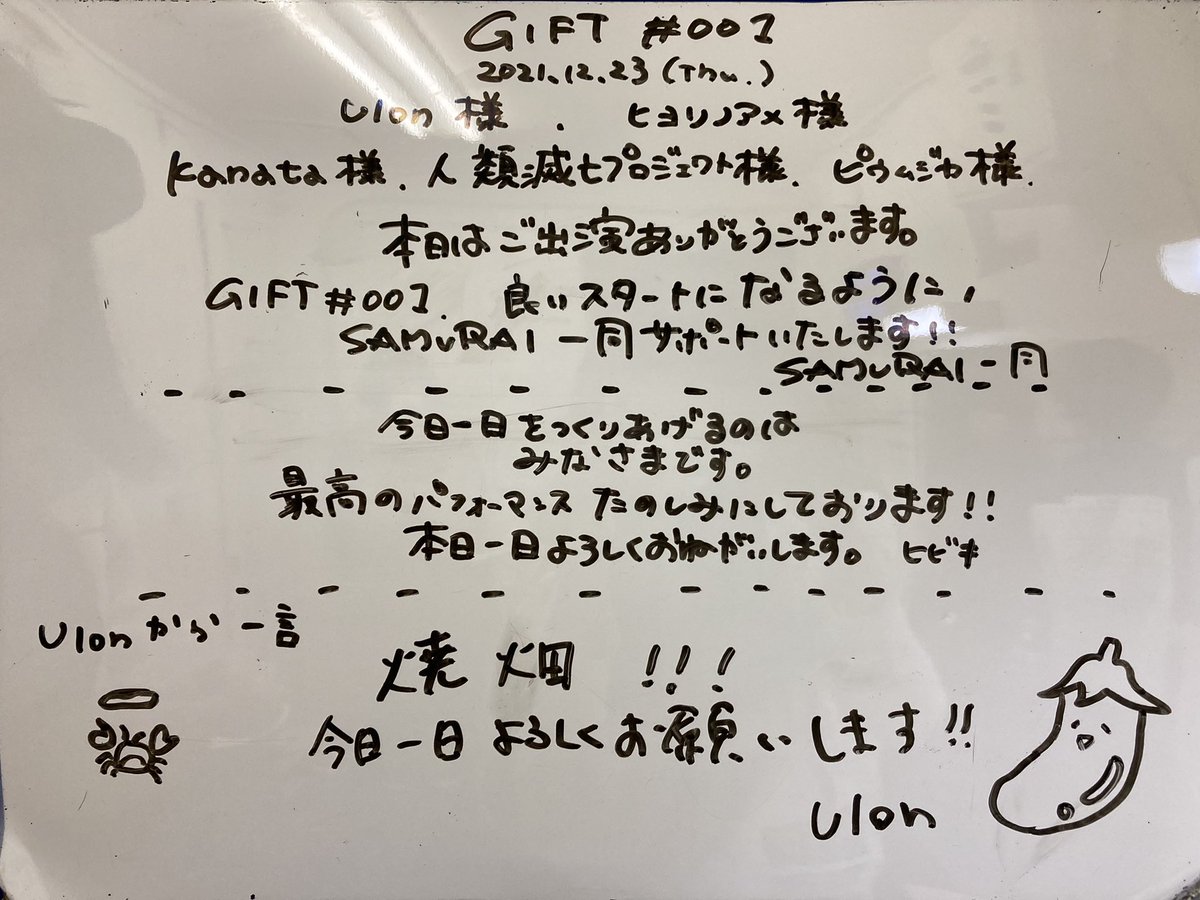 GIFT #001
2021.12.23(Thu.)
Ulon 様 . ヒヨリノアメ 様
Kanata 様. 人類滅亡プロジェクト様. ピウムジカ 様.
本日は ご出演ありがとうございます。
GIFT #001. 良いスタートに なるように,
SAMURAI 一同 サポートいたします!!
SAMURAI 一同
今日一日 をつくりあげるのは
みなさまです。
最高のパフォーマンス たのしみにしております!!
本日一日よろしくおねがいします。 ヒビキ
Ulon から 一言
焼 畑 !!!
今日一日 よろしくお願いします!!
Ulon